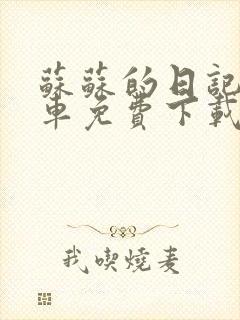 蘇蘇的日記
車免費下載
我喫燒麦